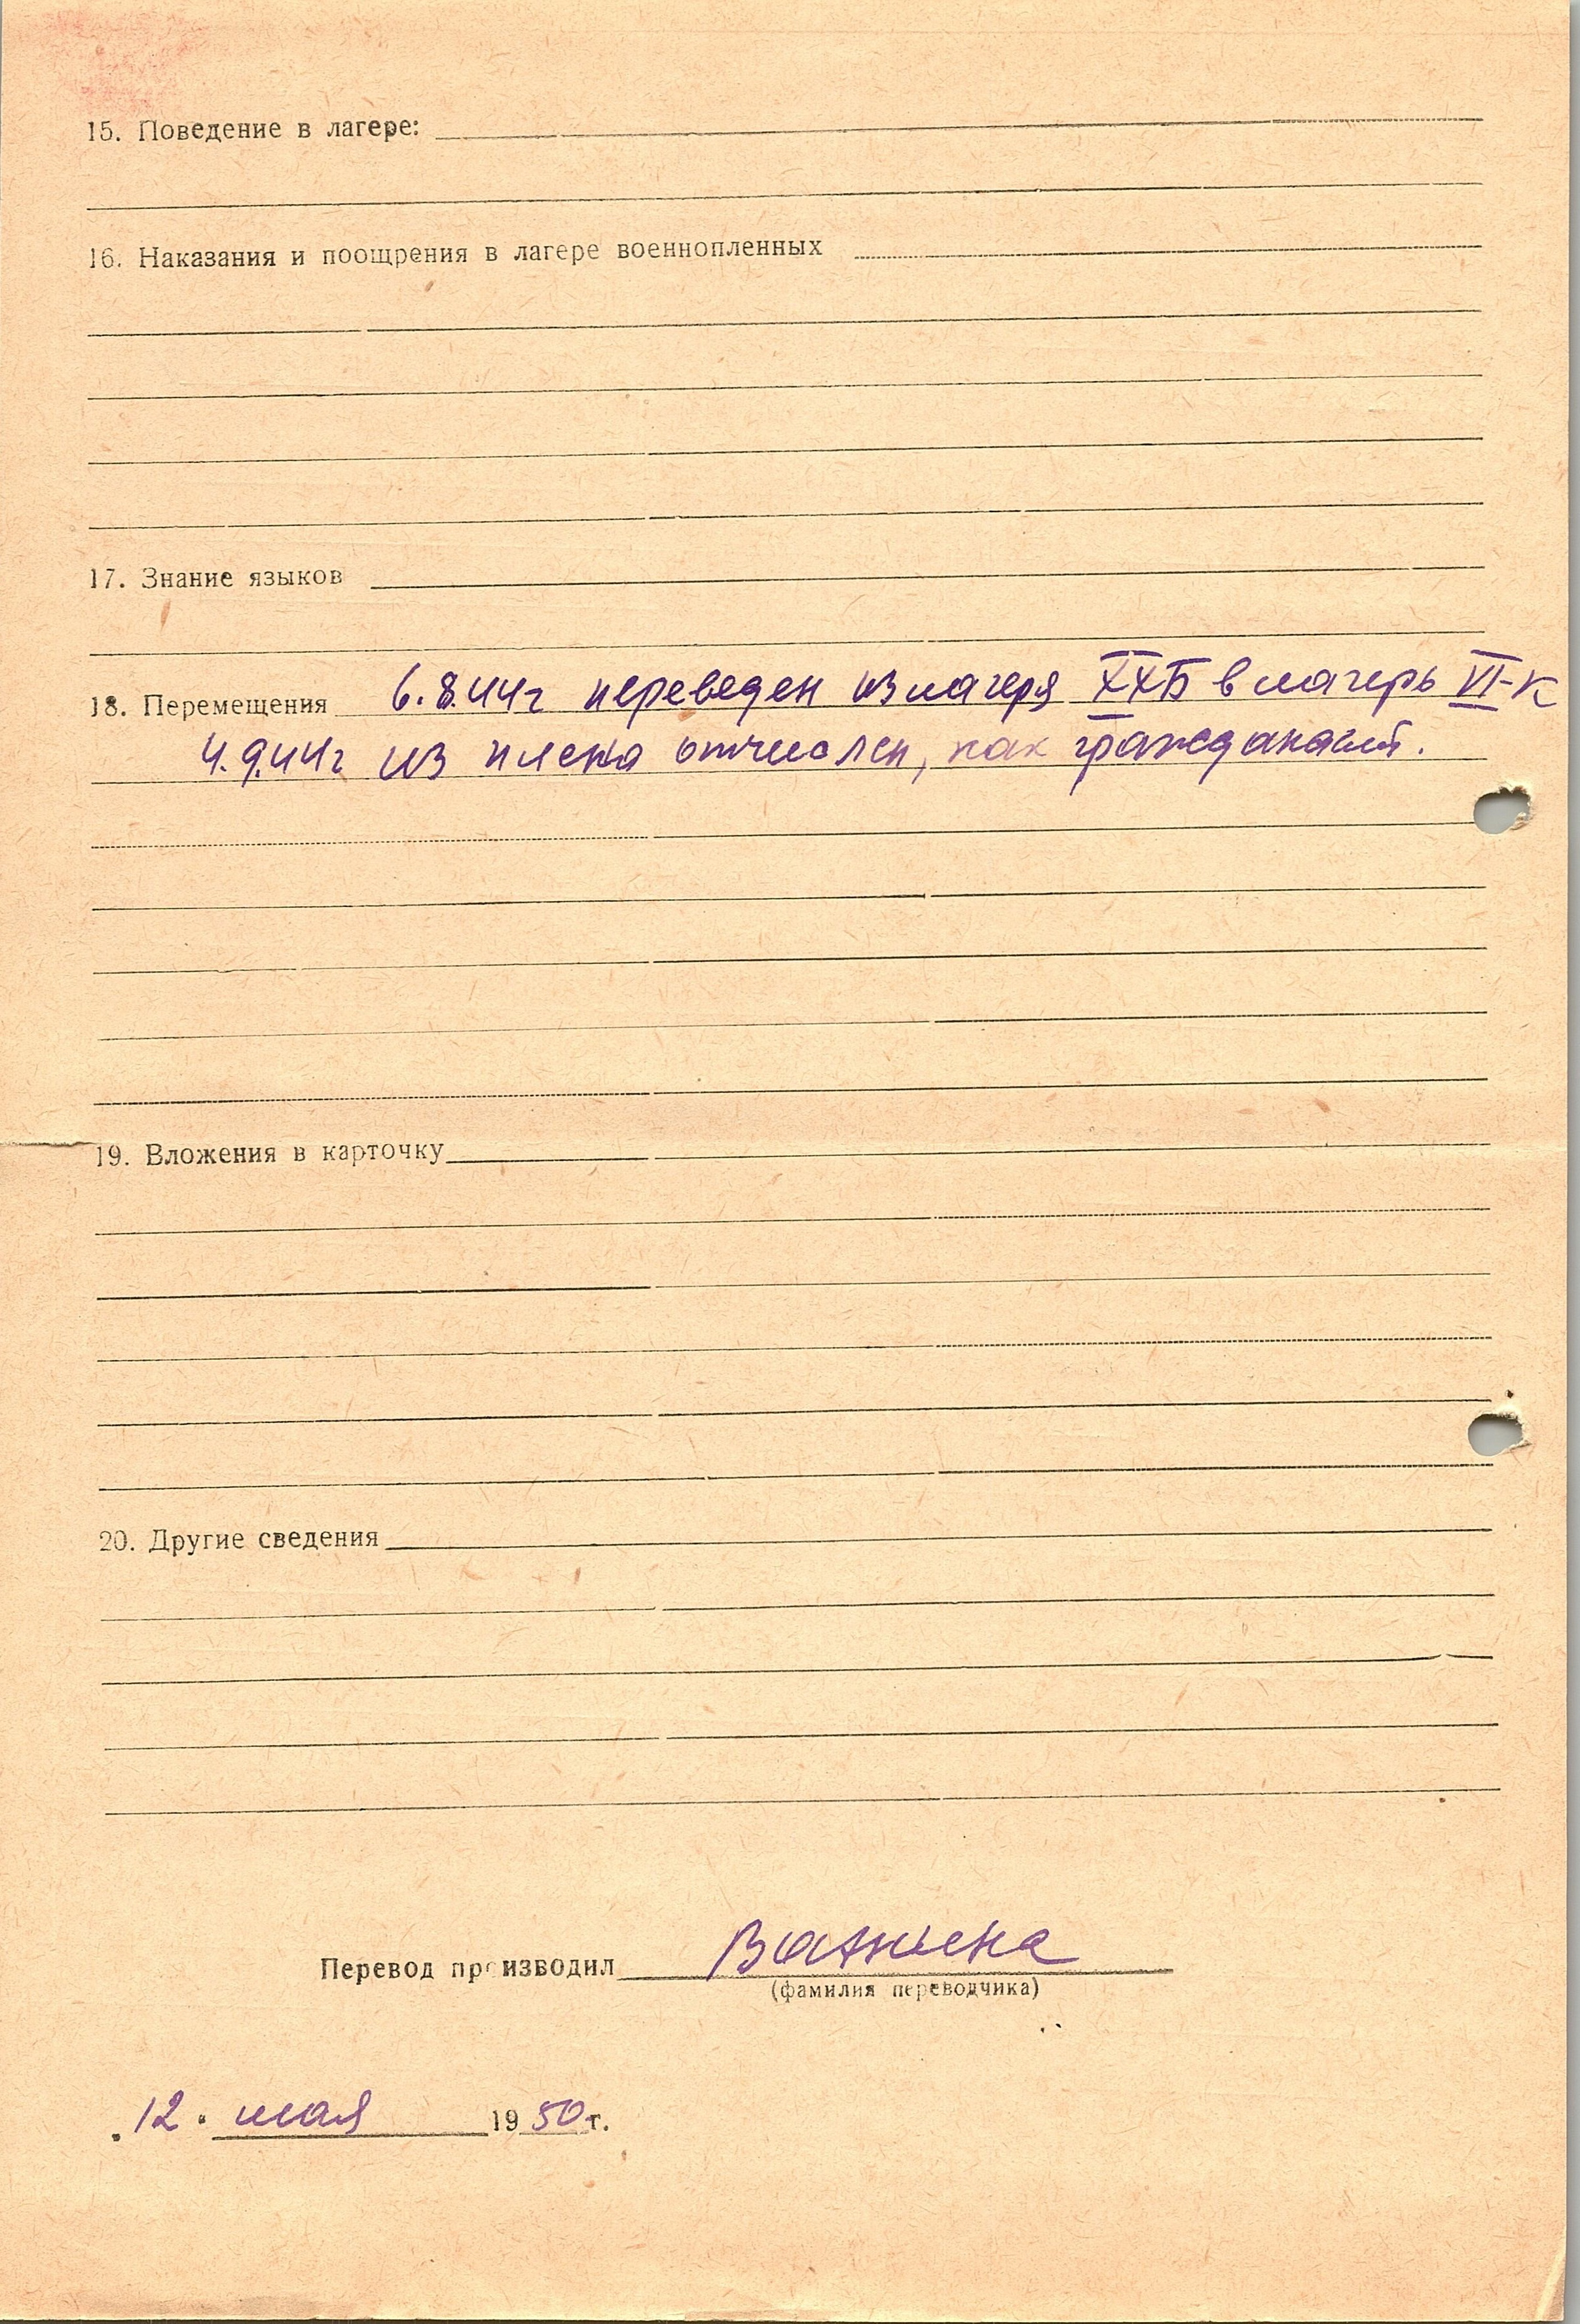 15. Поведение в лагере:
16. Наказания и поощрения в лагере военнопленных
17. Знание языков
18. Перемещения 6.8.44г переведен из лагеря XXБ в лагерь VI-К
4.9.44г из плена отчислен, как гражданский.
19. Вложения в карточку
20. Другие сведения
Перевод производил
(фамилия переводчика)
„12" мая 1950 г.